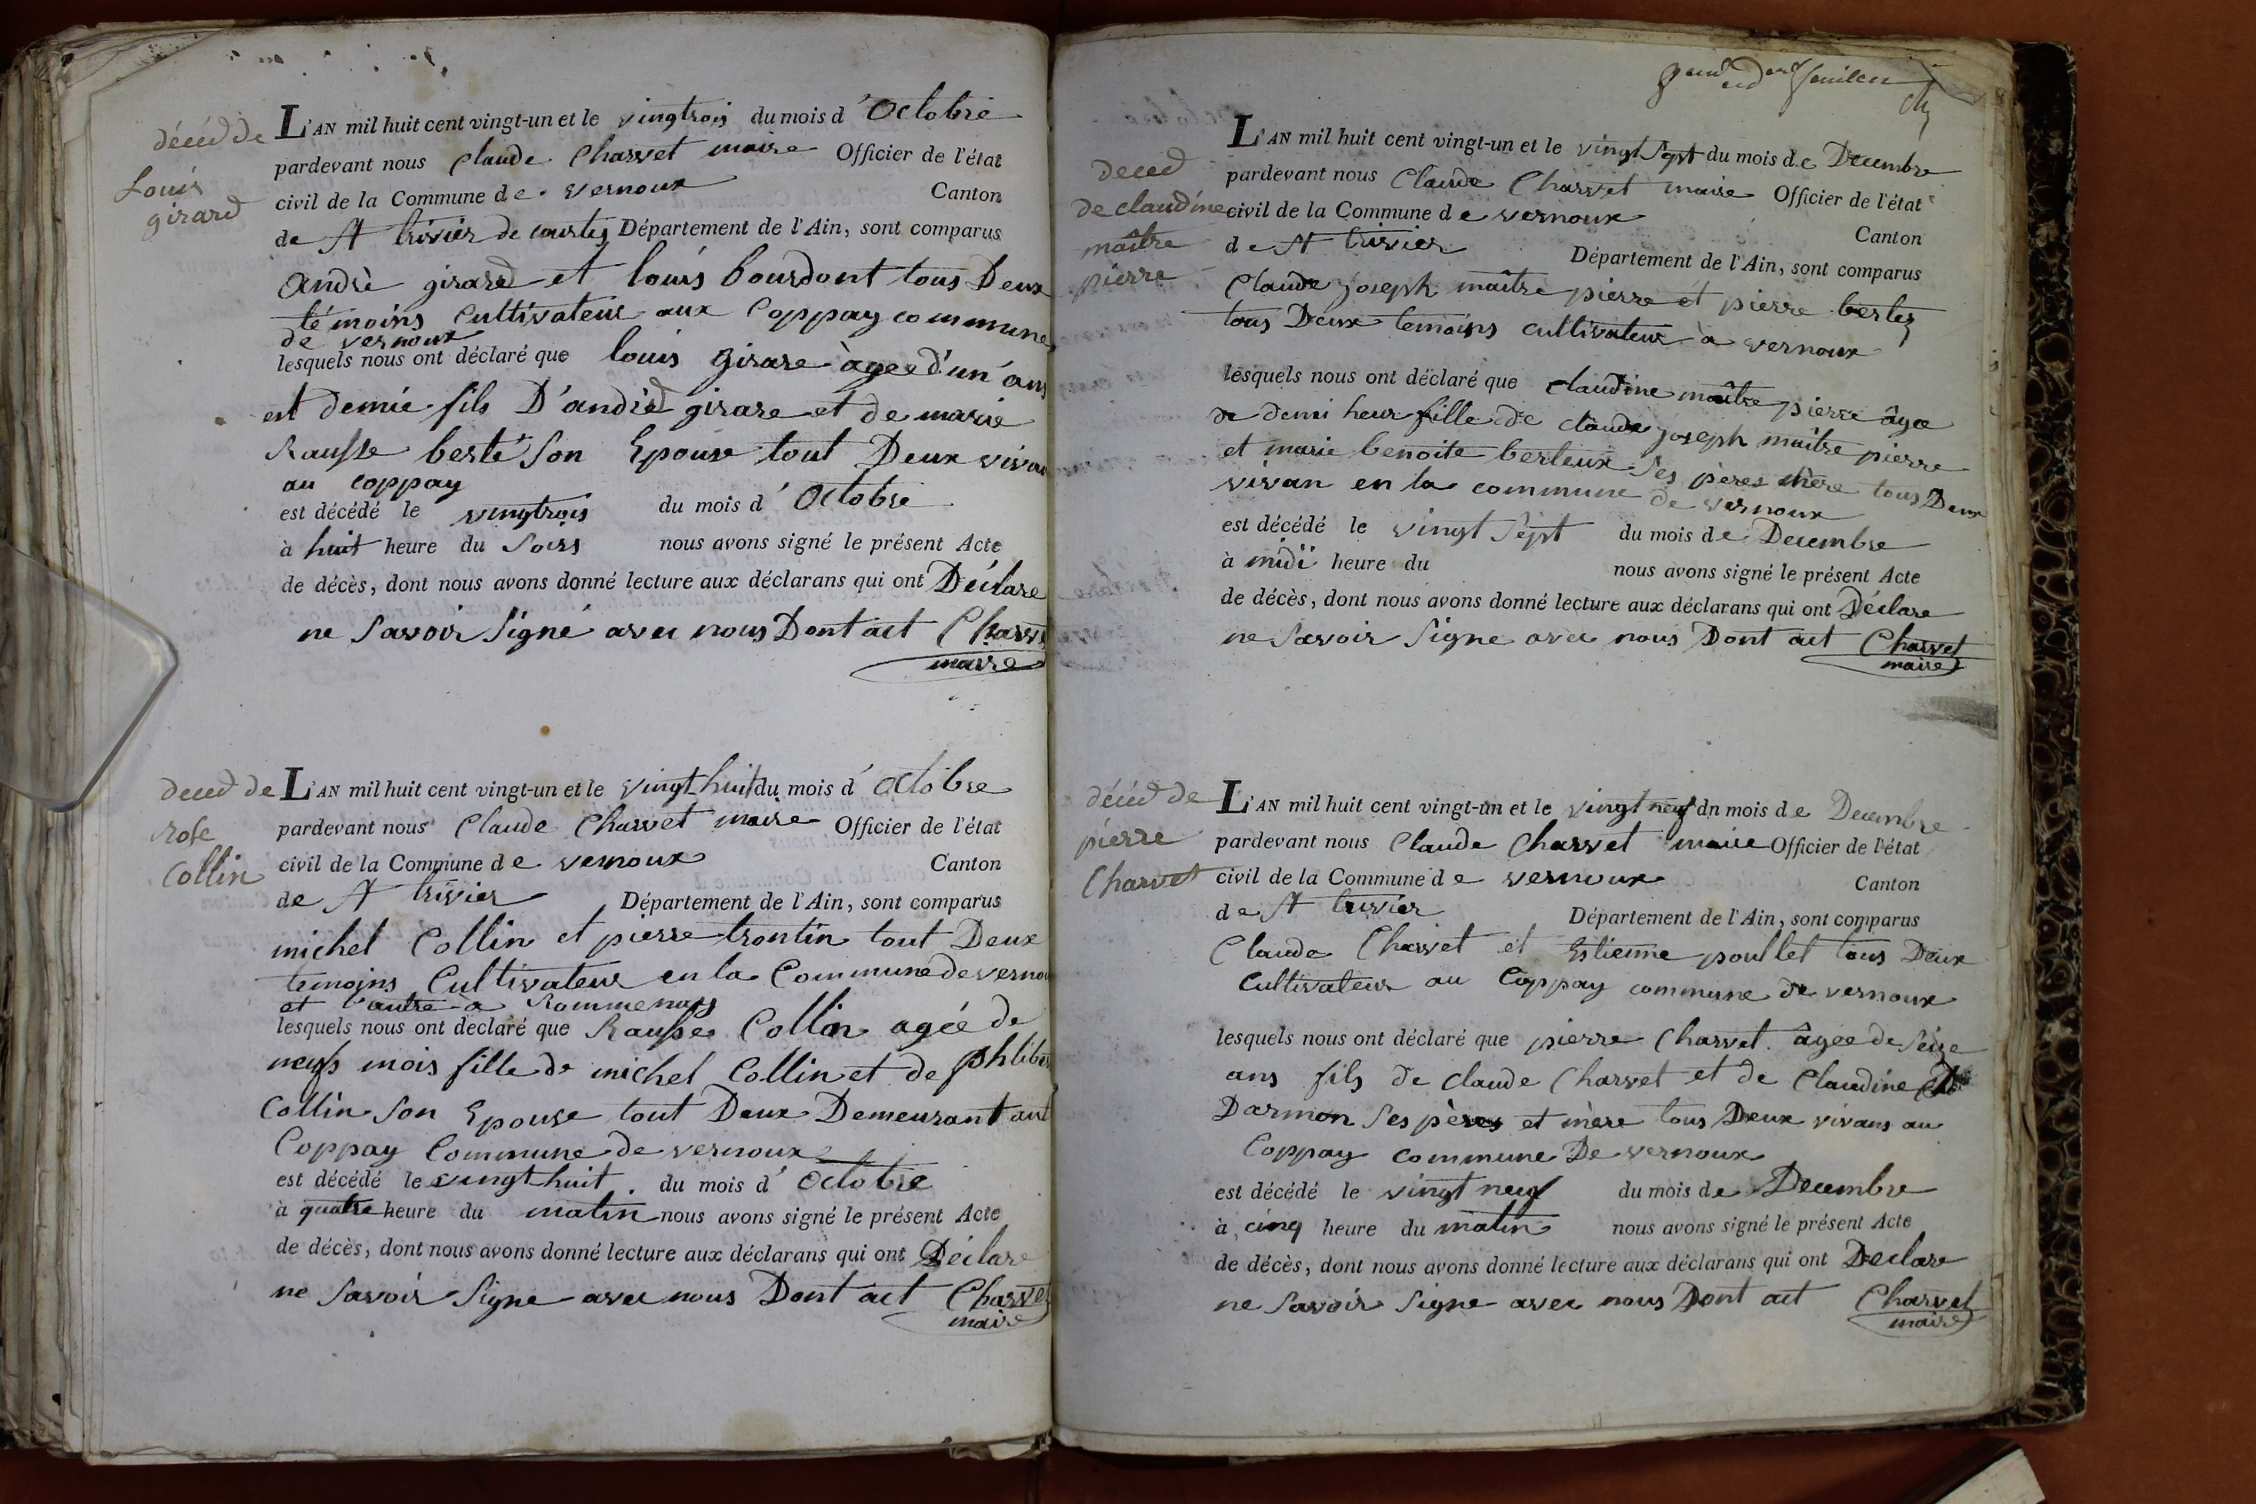 décéd de
Louis
girard
L'AN mil huit cent vingt-un et le vingtrois du mois d'Octobre
pardevant nous Claude Charvet maire Officier de l'état
civil de la Commune de vernoux Canton
de St trivier de courtes Département de l'Ain, sont comparus
andrè girard et louis bourdont tous Deux
témoins Cultivateur aux Coppay commune
de vernoux
lesquels nous ont déclaré que louis girare àgee d'un ans
est demie fils D'andrè girare et de marie
Rausse berte son Epouse tout Deux vivan
au coppay
est décédé le vingtrois du mois d'Octobre
à huit heure du soirs nous avons signé le présent Acte
de décès, dont nous avons donné lecture aux déclarans qui ont Déclare
ne savoir signé avec nous Dont act Charvet
maire
deced de
rose
Collin
L'AN mil huit cent vingt-un et le vingt huit du mois d'Octobre
pardevant nous Claude Charvet maire Officier de l'état
civil de la Commune de vernoux Canton
de St trivier Département de l'Ain, sont comparus
michel Collin et pierre trontin tout Deux
temoins Cultivateur en la Commune de verno
et l'autre à Rommenay
lesquels nous ont déclaré que Rausse Collin agée de
neufs mois fille de michel Collin et de phliber
Collin son Epouse tout Deux Demeurant aut
Coppay Commune de vernoux
est décédé le vingt huit du mois d'Octobre
à quatre heure du matin nous avons signé le présent Acte
de décès, dont nous avons donné lecture aux déclarans qui ont Déclare
ne savoir signe avec nous Dont act Charvet
maire
feuillet
deced
de claudine
maître
pierre
L'AN mil huit cent vingt-un et le vingt sept du mois de Decembre
pardevant nous Claude Charvet maire Officier de l'état
civil de la Commune de vernoux Canton
de St trivier Département de l'Ain, sont comparus
Claude joseph maître pierre et pierre bertez
tous Deux temoins cultivateur à vernoux
lesquels nous ont déclaré que claudine maître pierre âgee
de demi heur fille de claude joseph maître pierre
et marie benoite berteux ses pères mère tous Deux
vivan en la commune de vernoux
est décédé le vingt sept du mois de Decembre
à midi heure du nous avons signé le présent Acte
de décès, dont nous avons donné lecture aux déclarans qui ont Déclare
ne savoir signe avec nous Dont act Charvet
maire
décéd de
pierre
Charvet
L'AN mil huit cent vingt-un et le vingt neuf dn mois de Decembre
pardevant nous Claude Charvet maire Officier de l'état
civil de la Commune de vernoux Canton
de St trivier Département de l'Ain, sont comparus
Claude Charvet et Estienne poullet tous Deux
Cultivateur au Coppay commune de vernoux
lesquels nous ont déclaré que pierre Charvet âgee de seize
ans fils de Claude Charvet et de Claudine
Darmon ses pères et mère tous Deux vivans au
Coppay commune De vernoux
est décédé le vingt neuf du mois de Decembre
à cinq heure du matin nous avons signé le présent Acte
de décès, dont nous avons donné lecture aux déclarans qui ont Declare
ne savoir signe avec nous Dont act Charvet
maire